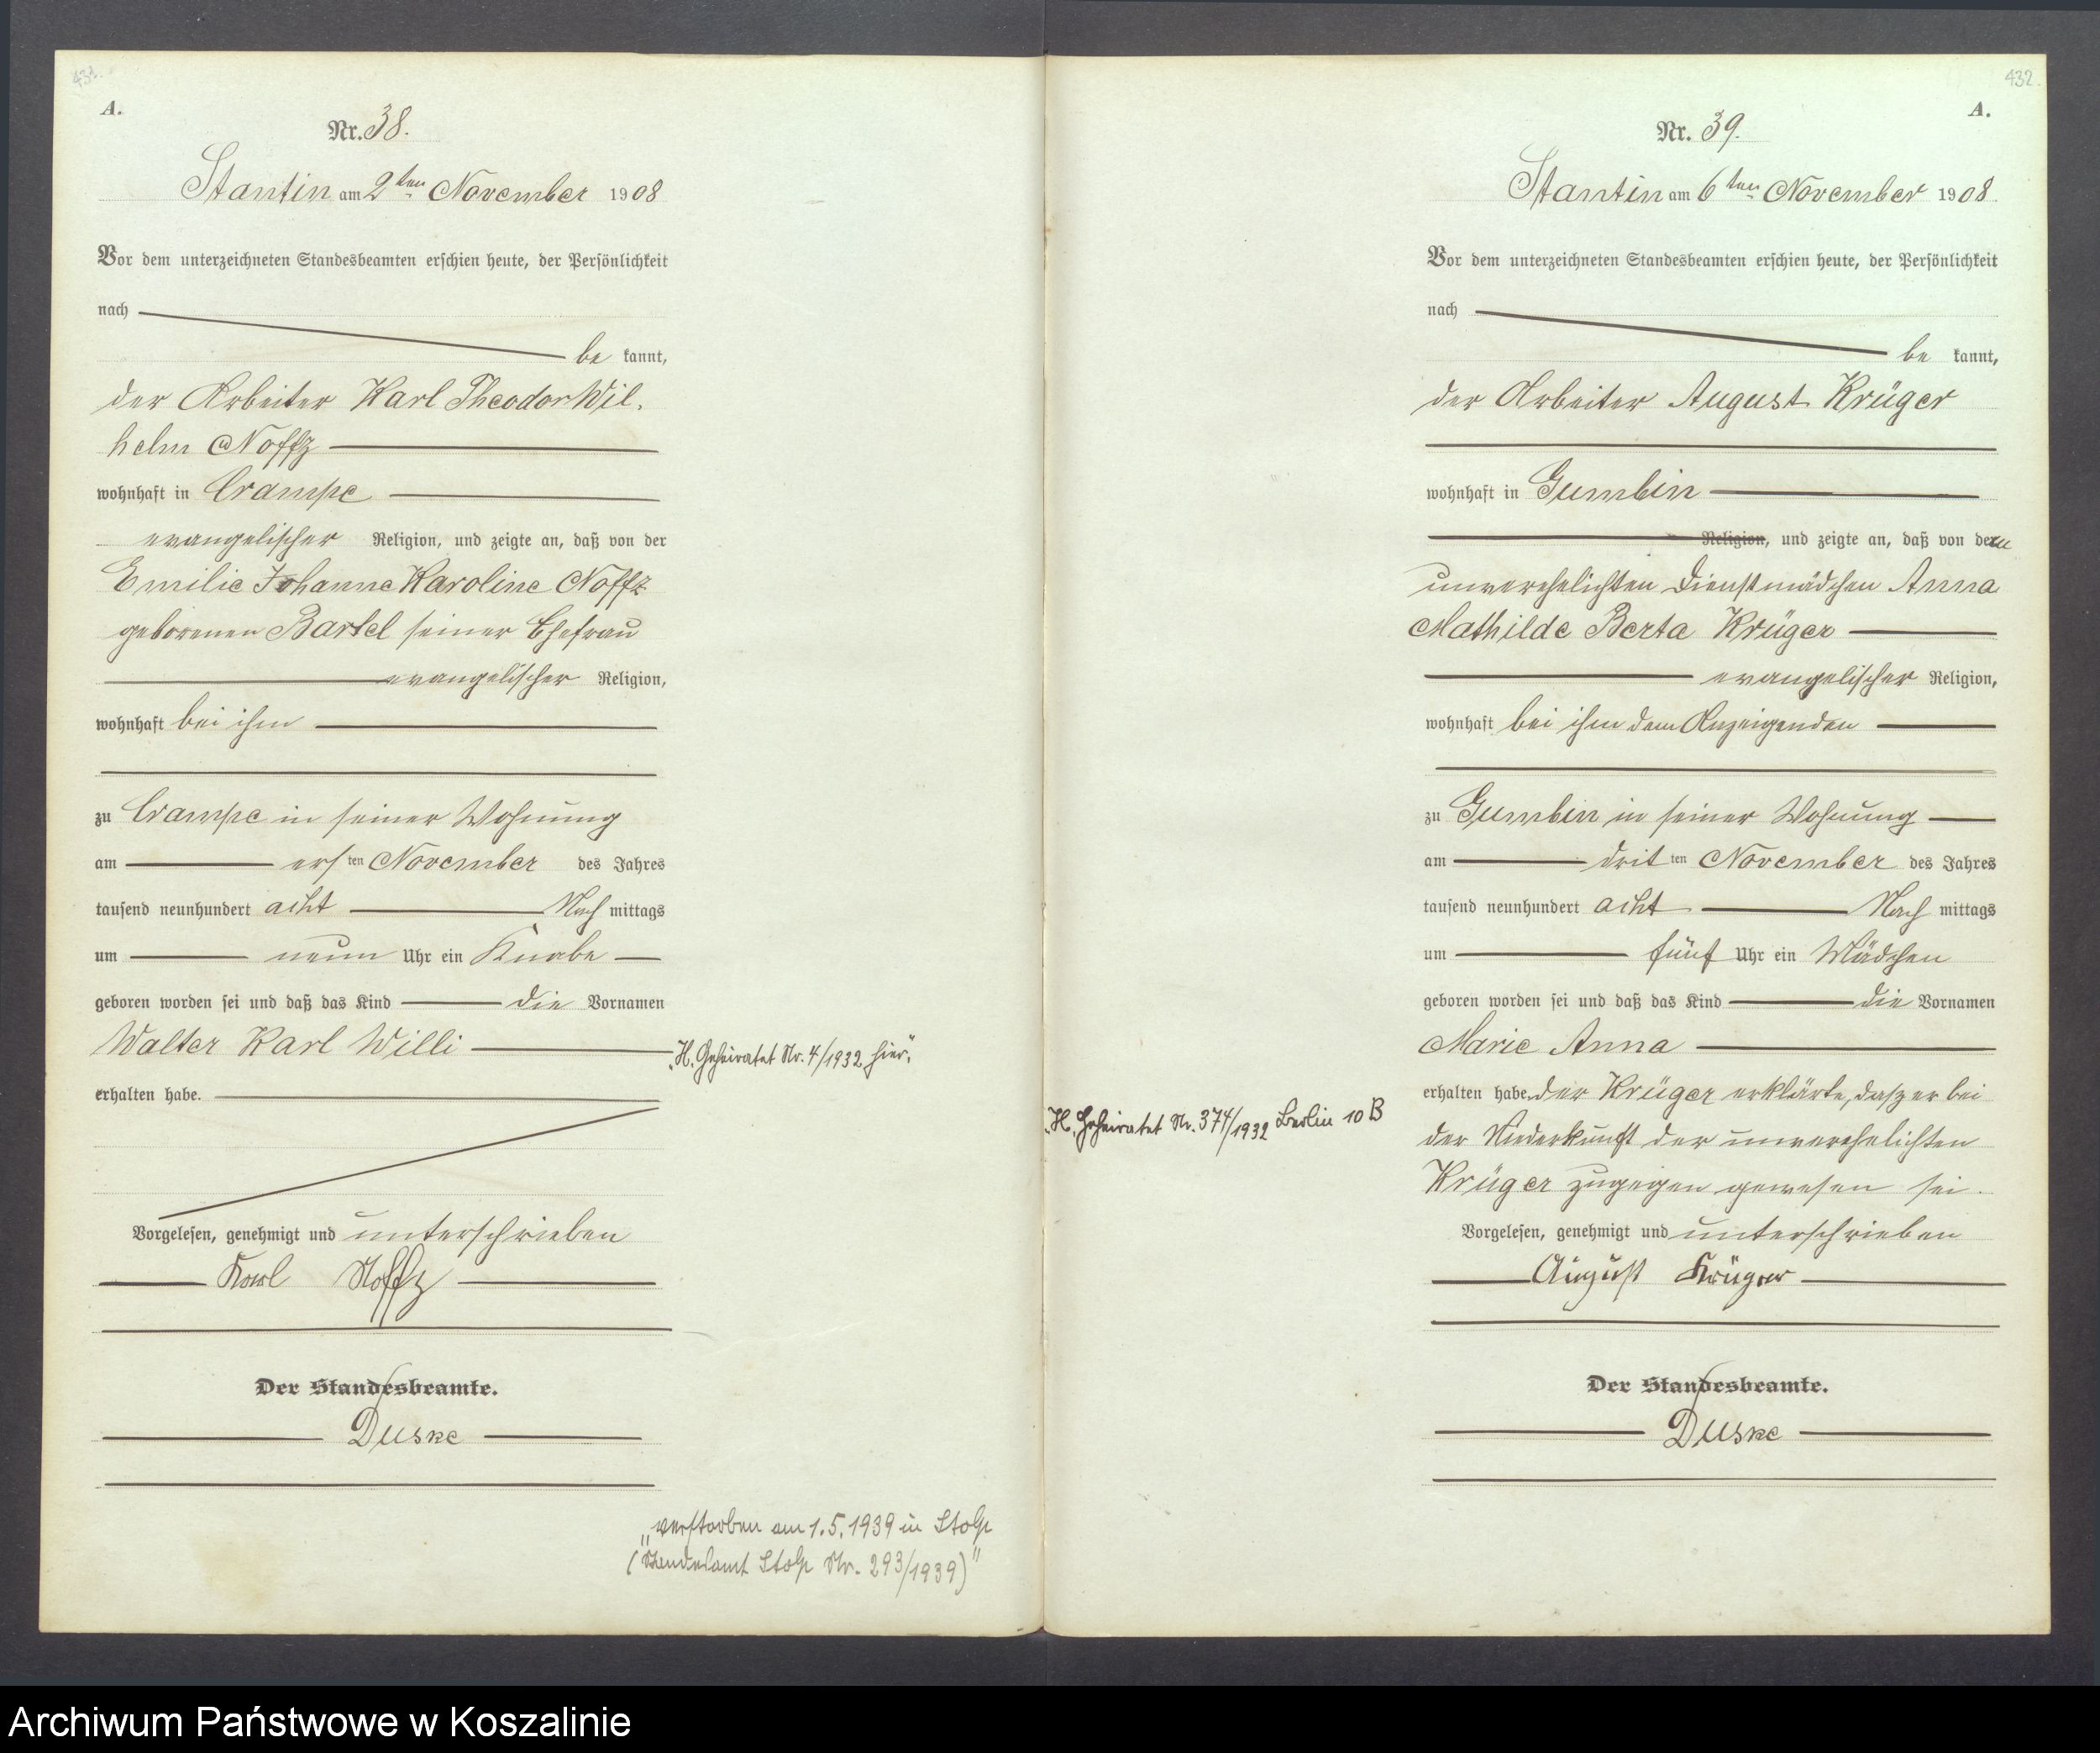 431.
A.
Nr. 38.
Stantin am 2ten November 1908
Vor dem unterzeichneten Standesbeamten erschien heute, der Persönlichkeit
nach
be kannt,
der Arbeiter Karl Theodor Wil-
helm Noffz
wohnhaft in Crampe
evangelischer Religion, und zeigte an, daß von der
Emilie Johanne Karoline Noffz
geborenen Bartel seiner Ehefrau
evangelischer Religion,
wohnhaft bei ihm
zu Crampe in seiner Wohnung
am ersten November des Jahres
tausend neunhundert acht Nach mittags
um neun Uhr ein Knabe
geboren worden sei und daß das Kind die Vornamen
Walter Karl Willi
erhalten habe.
"H. Geheiratet Nr. 4/1932 hier".
Vorgelesen, genehmigt und unterschrieben
Karl Noffz
Der Standesbeamte.
Duske
"verstorben am 1.5.1939 in Stolp
(Standesamt Stolp Nr. 293/1939)"
432.
A.
Nr. 39.
Stantin am 6ten November 1908.
Vor dem unterzeichneten Standesbeamten erschien heute, der Persönlichkeit
nach
be kannt,
der Arbeiter August Krüger
wohnhaft in Gumbin
Religion, und zeigte an, daß von der
unverehelichten Dienstmädchen Anna
Mathilde Berta Krüger
evangelischer Religion,
wohnhaft bei ihm dem Anzeigenden
zu Gumbin in seiner Wohnung
am dritten November des Jahres
tausend neunhundert acht Nach mittags
um fünf Uhr ein Mädchen
geboren worden sei und daß das Kind die Vornamen
Marie Anna
erhalten habe. der Krüger erklärte, daß er bei
"H. Geheiratet Nr. 374/1932 Berlin 10 B
der Niederkunft der unverehelichten
Krüger zugegen gewesen sei.
Vorgelesen, genehmigt und unterschrieben
August Krüger
Der Standesbeamte.
Duske
Archiwum Państwowe w Koszalinie